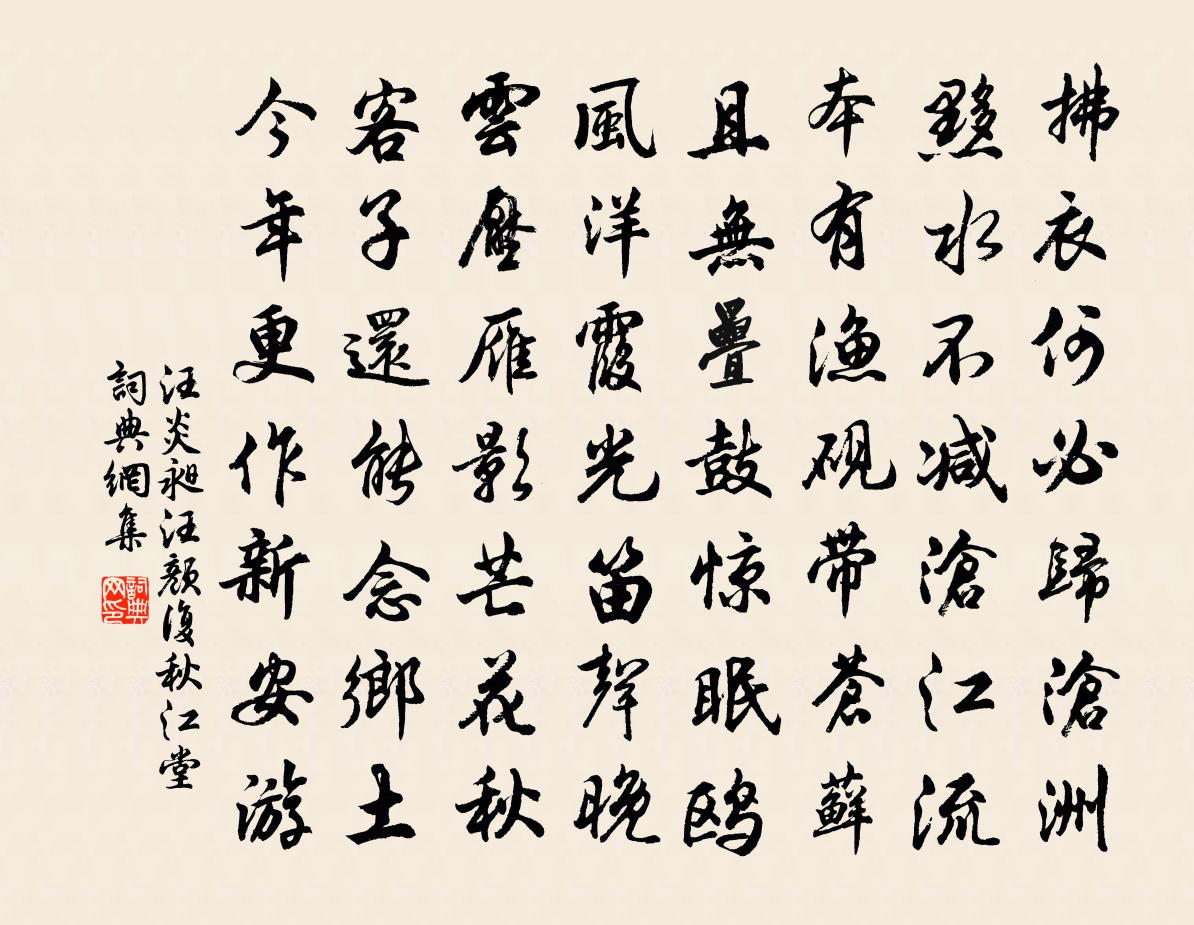 拂衣何必歸滄洲
黟水不减滄江流
本有漁砚带蒼蘚
且無疊鼓惊眠鸥
風洋霞光笛聲晚
雲壓雁影芒花秋
客子還能念鄉土
今年更作新安游
汪炎昶汪顏復秋江堂
詞典網集